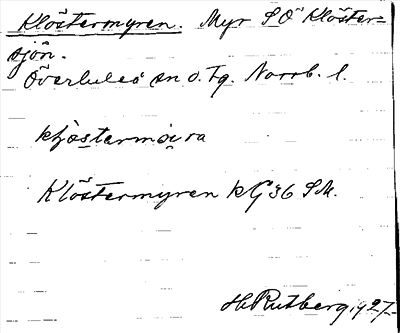 Klöstermyren. Myr SO Klöster-
sjön.
Överluleå sn o. Tg. Norrb. l.
Klöstermyren kG 36 SM.
H. Rutberg. 1927.